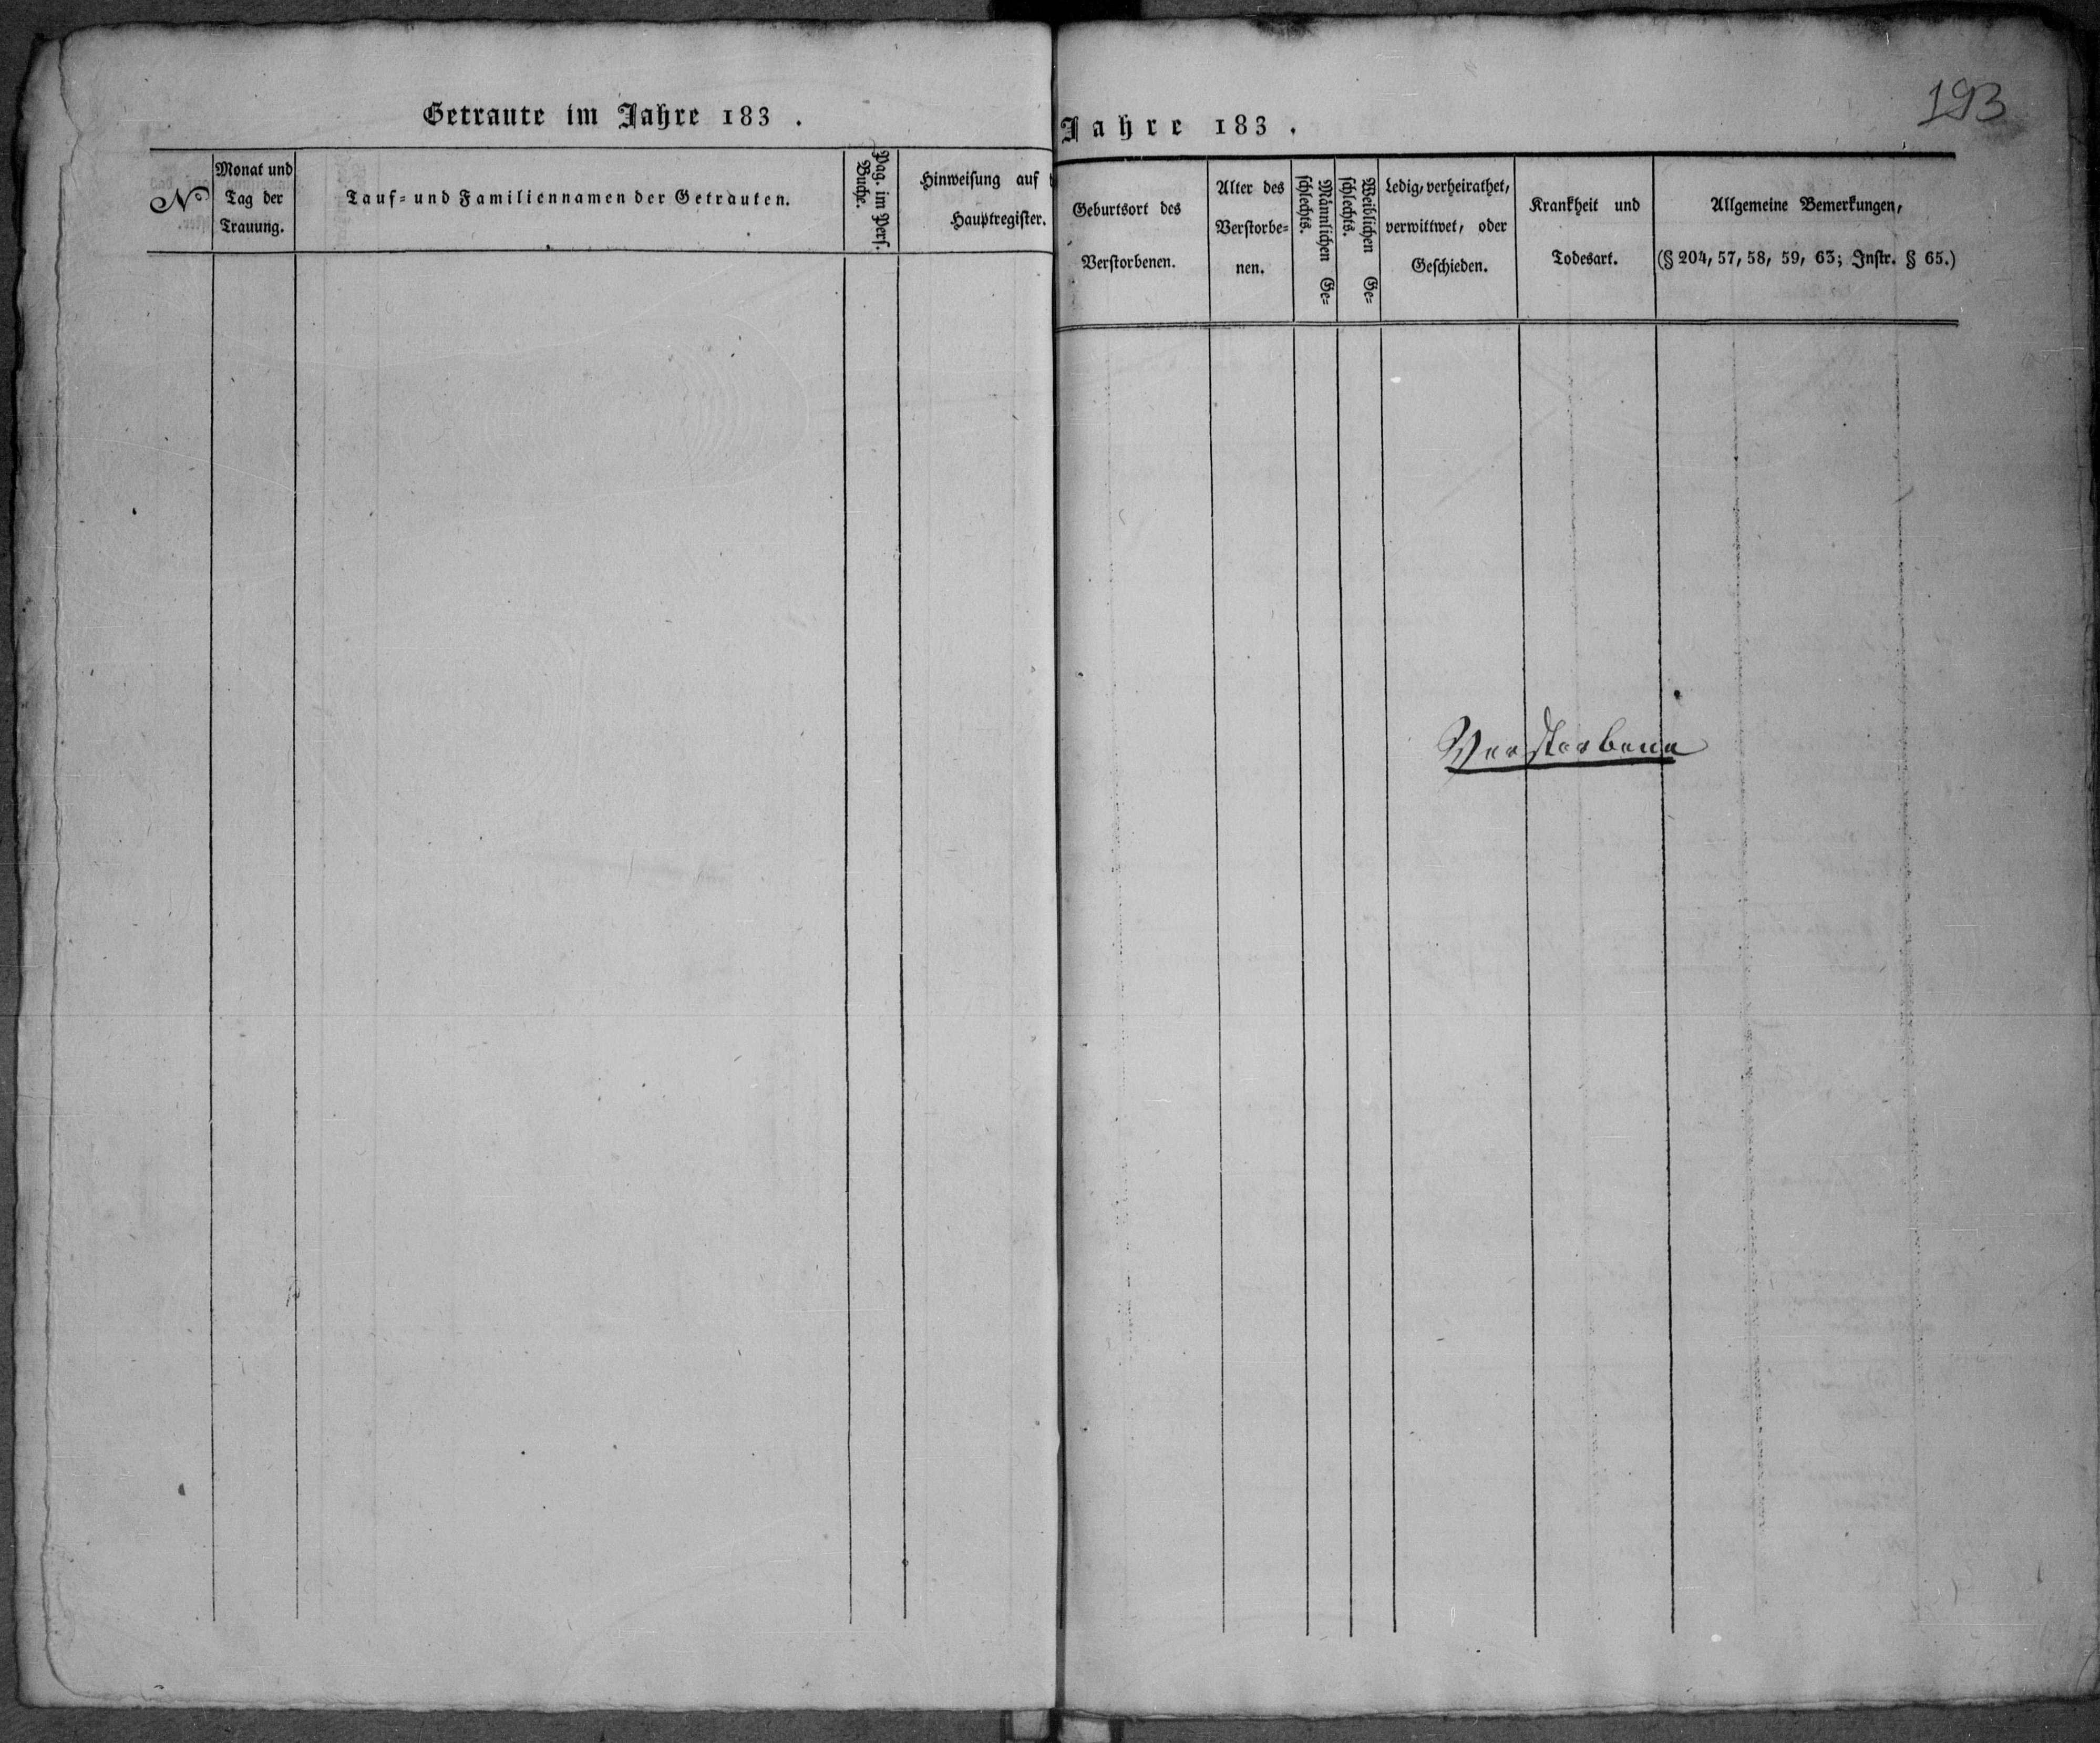 Getraute im Jahre 183 .
No
Monat und
Tag der
Trauung.
Tauf= und Familiennamen der Getrauten.
Pag. im Pers.
Buche.
Hinweisung auf
Hauptregister.
193
Jahre 183 .
Geburtsort des
Verstorbenen.
Alter des
Verstorbe=
nen.
Männlichen Ge=
schlechts.
Weiblichen Ge=
schlechts.
Ledig, verheirathet,
verwittwet, oder
Geschieden.
Krankheit und
Todesart.
Allgemeine Bemerkungen,
(§ 204, 57, 58, 59, 63; Instr. § 65.)
Verstorbene